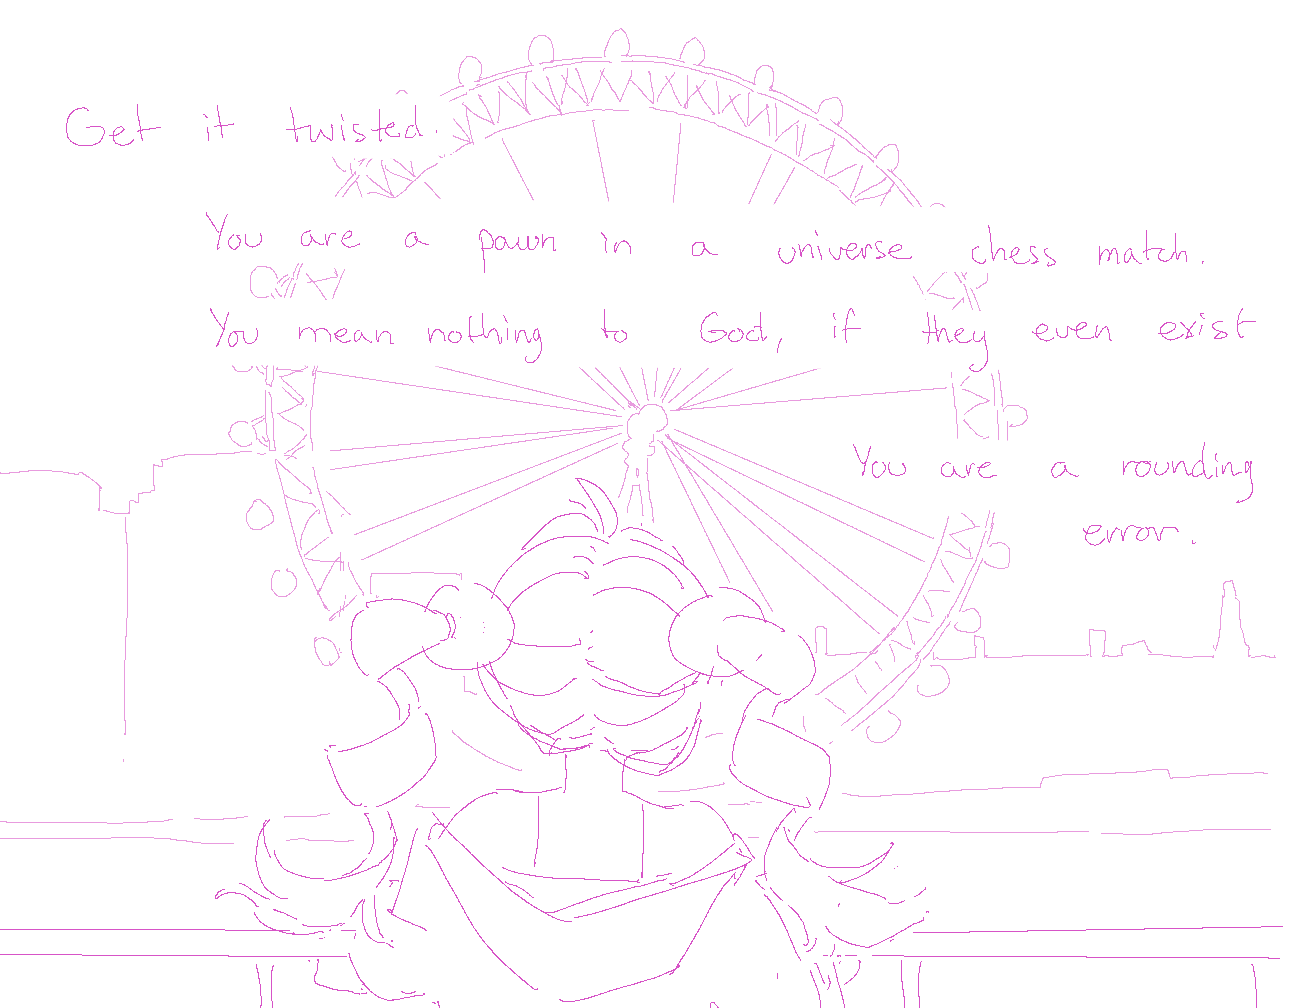 Get it twisted.
You are a pawn in a universe chess match.
You mean nothing to God, if they even exist
You are a rounding
error.